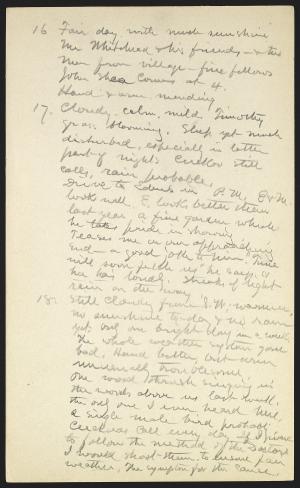 16 Fair day, with much sunshine
Mr Whitehead & his friends - & the
man from village - fine fellows
John Shea comes at 4.
Hand & arm mending
17. Cloudy, calm, mild. Timothy
grass blooming. Sleep yet much
disturbed, especially in latter
part of night. Cuckoo still
calls, rain probable.
Drive to Edens in P.M. E & M.
look well. E. looks better than
last year, a fine garden which
he takes pride in showing.
Teases me on our approaching
End - a good joke to him "Time
will soon fetch us" he says &
her has loudly. Streaks of light
rain on the way
18. Still cloudy from S.W. warmer,
no sunshine to-day & no rain
yet, only one bright day in a week,
the whole weather system gone
bad. Hand better, last arm
unusually troublesome.
One wood thrush singing in
the woods above us last night,
the only one I ever heard here,
a single male bird probably.
Cuckoos call every day. If I were
to follow the method of the Doctors
I would shoot them to ensure fair
weather, the symptom for the cause.